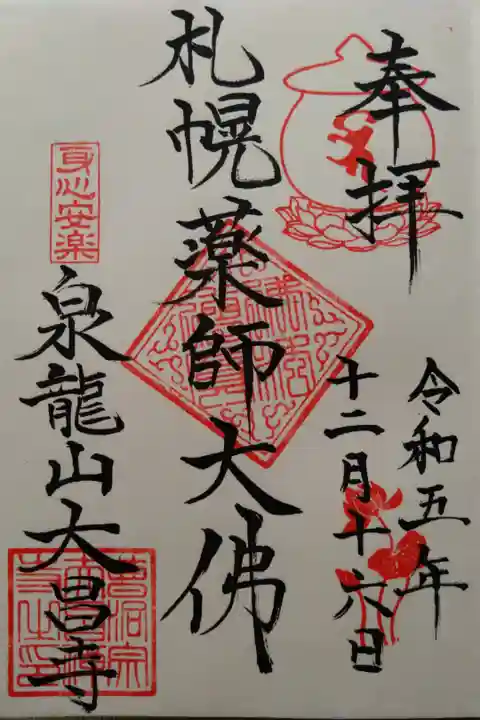 奉拝
令和五年
十二月十六日
札幌薬師大佛
身心安楽
泉龍山大昌寺